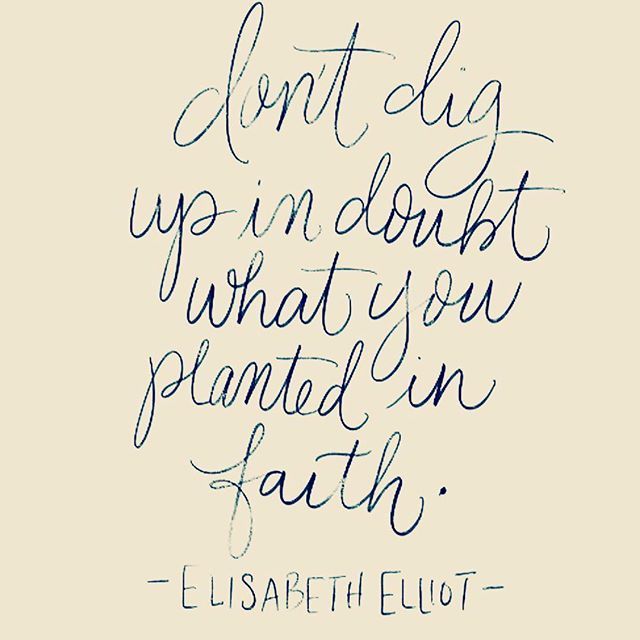 don't dig
up in doubt
what you
planted in
faith.
- ELISABETH ELLIOT -